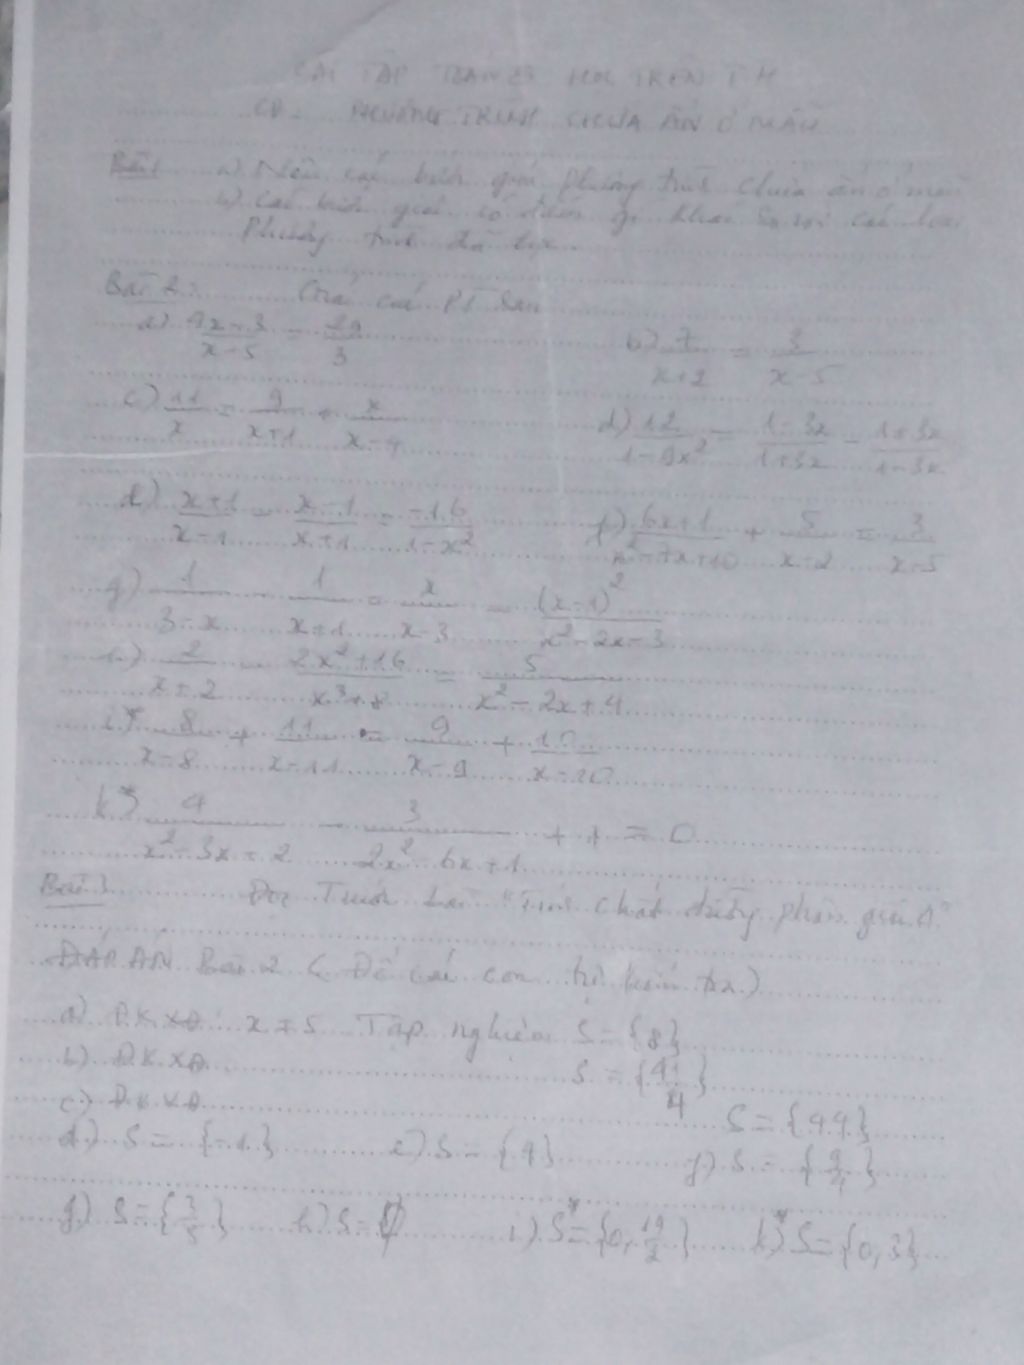 BÀI TẬP TOÁN 8 HỌC TRÊN TH
CĐ. PHƯƠNG TRÌNH CHỨA ẨN Ở MẪU
Bài 1 a) Nêu các bước giải phương trình chứa ẩn ở mẫu
b) Các bước giải có điểm gì khác so với các loại
Phương trình đã học.
Bài 2: Giải các PT sau
a) (4x-3)/(x-5) = 29/3 b) 7/(x+2) = 3/(x-5)
c) 11/x = 9/(x+1) + /(x-4) d) 12/(1-9x²) = (1-3x)/(1+3x) - (1+3x)/(1-3x)
d) (x+1)/(x-1) - (x-1)/(x+1) = -16/(1-x²) f) (6x+1)/(x²-7x+10) + 5/(x-2) = 3/(x-5)
g) 1/(3-x) - 1/(x+1) = x/(x-3) - (x-1)²/(x²-2x-3)
h) 2/(x+2) - (2x²+16)/(x³+8) = 5/(x²-2x+4)
i)* 8/(x-8) + 11/(x-11) = 9/(x-9) + 10/(x-10)
k)* 4/(x²-3x+2) - 3/(2x²-6x+1) + 1 = 0
Bài 3 Đọc Trước bài "Tính chất đường phân giác"
ĐÁP ÁN Bài 2 (Để các con tự kiểm tra)
a) Đ.K.XĐ x ≠ 5 Tập nghiệm S = {8}
b) Đ.K.XĐ S = {41/4}
c) Đ.K.XĐ S = {44}
d) S = {-1} e) S = {4} f) S = {9/4}
g) S = {3/5} h) S = ∅ i)* S = {0, 19/2} k)* S = {0, 3}